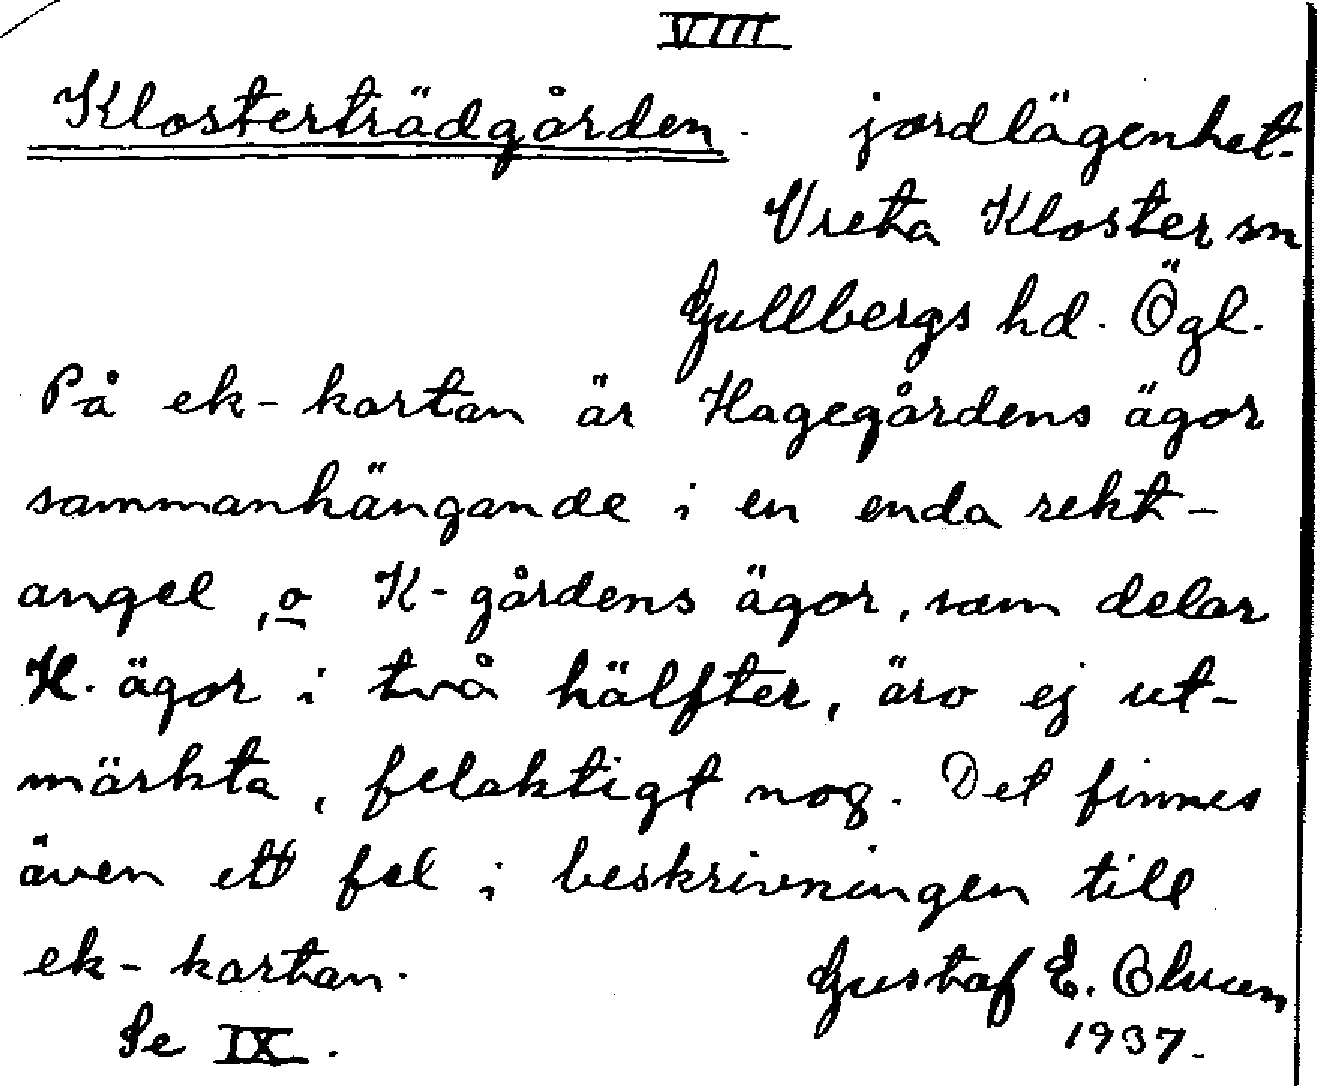 VIII
Klosterträdgården. jordlägenhet.
Vreta Kloster sn
Gullbergs hd. Ögl.
På ek-kartan är Hagegårdens ägor
sammanhängande i en enda rekt-
angel, o K-gårdens ägor, som delar
H. ägor i två hälfter, äro ej ut-
märkta, felaktigt nog. Det finnes
även ett fel i beskrivningen till
ek-kartan.
Gustaf E.
1937.
Se IX.